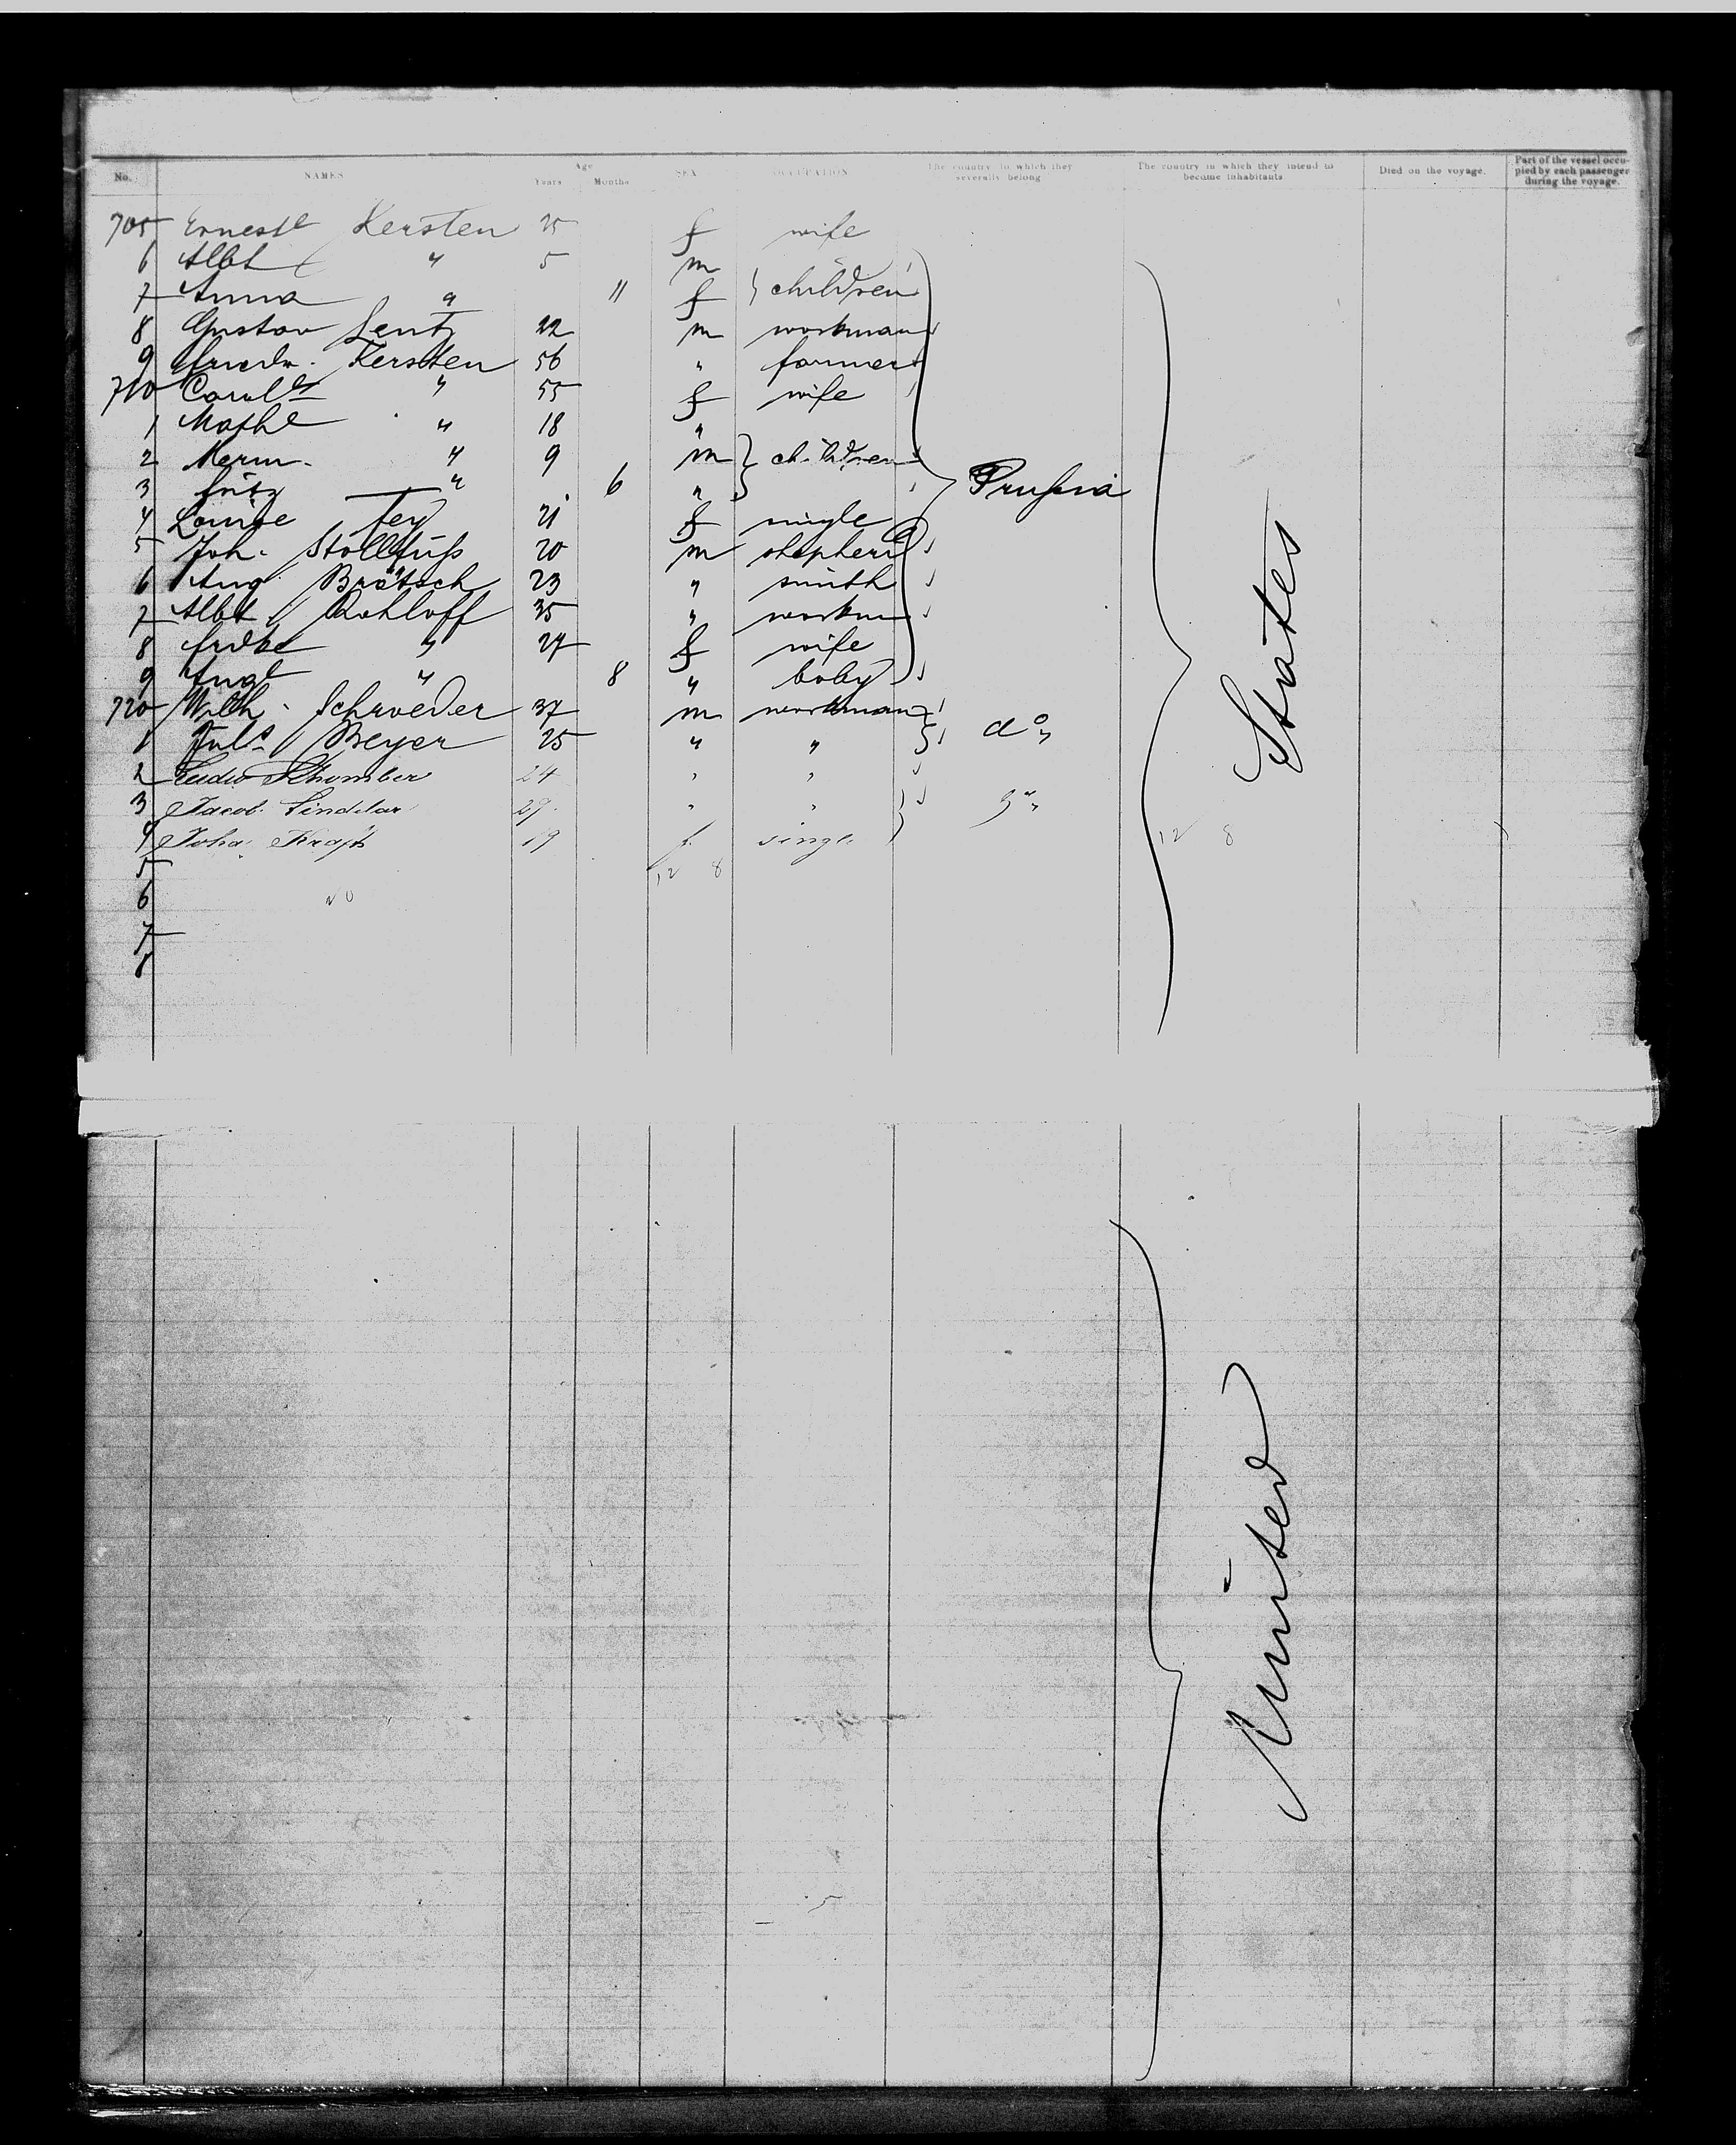 No. NAMES Age Years Months SEX OCCUPATION The country to which they severally belong The country in which they intend to become inhabitants Died on the voyage. Part of the vessel occupied by each passenger during the voyage.
705 Ernestе Kersten 25 f wife
6 Albt " 5 m
7 Anna " 11 f } children
8 Gustav Lentz 22 m workman
9 Friedr. Kersten 56 " farmer
710 Carol " 55 f wife
1 Mathe " 18 "
2 Herm. " 9 m } children
3 Fritz " 6 " Prussia
4 Louise Fey 21 f single
5 Joh. Stollfuss 20 m shepherd
6 Aug. Brätsch 23 " smith
7 Albt Rohloff 35 " workm
8 Fridke " 27 f wife
9 Aug " 8 " baby
720 Wilh. Schroeder 37 m workman
1 Juls Beyer 25 " " do "
2 Ludw Schomber 24 " "
3 Jacob Sindelar 29 " "
4 Joha Kraft 19 f. single 12 8
5 12 8
6 20
7
8
United States